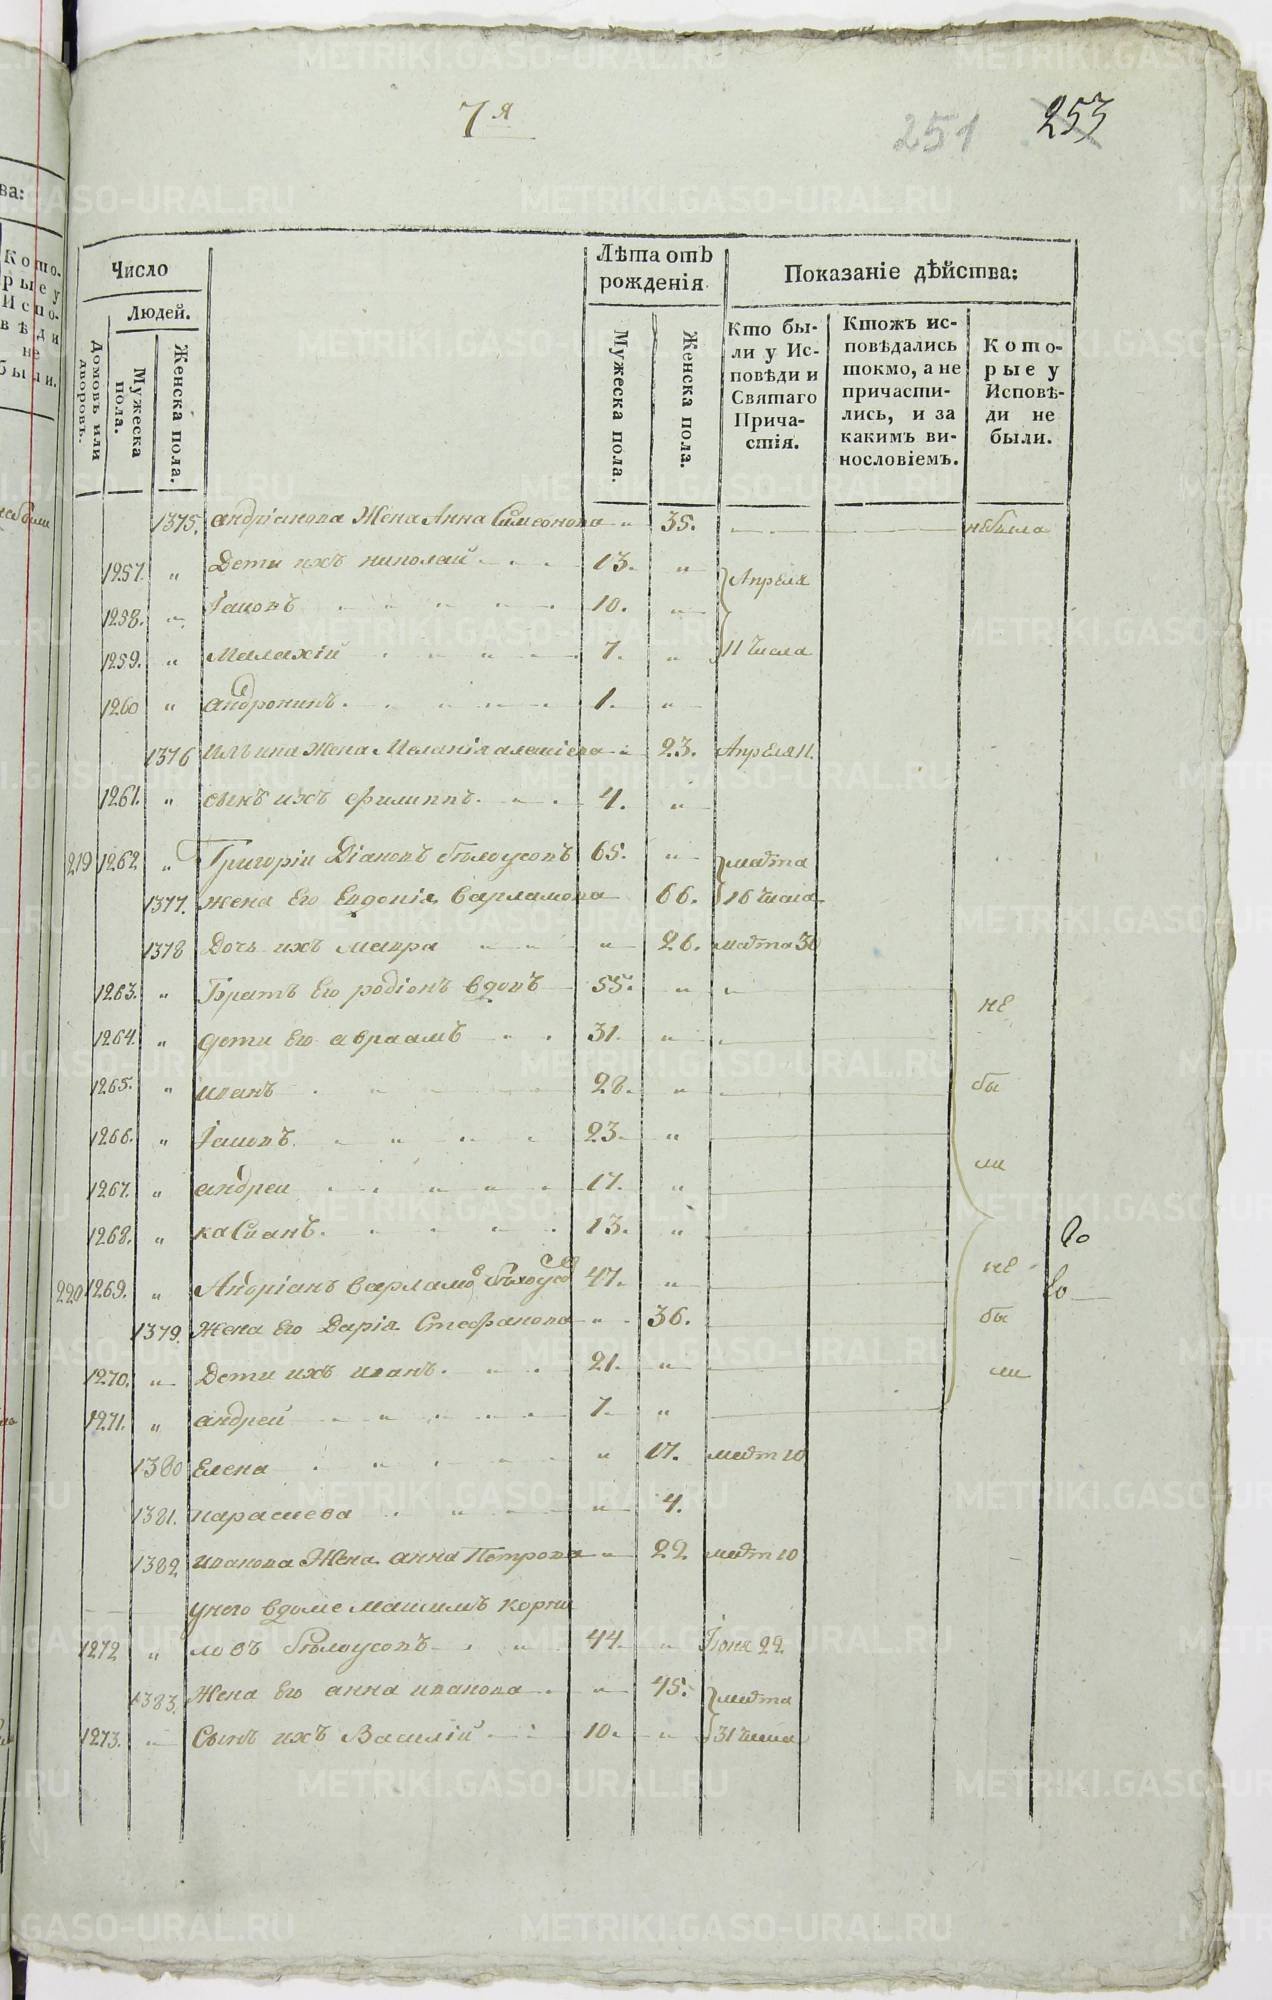 7я
251
253
Число
Людей.
Домовъ или дворовъ.
Мужеска пола.
Женска пола.
Лѣта отъ рожденія
Мужеска пола.
Женска пола.
Показаніе дѣйства:
Кто были у Исповѣди и Святаго Причастія.
Ктожъ исповѣдались токмо, а не причастились, и за какимъ винословіемъ.
Которые у Исповѣди не были.
1375. андріянова Жена Анна Симеонова " 35. небыла
1257. " Дети ихъ николай 13. " Апреля
1258. " Іаковъ 10. "
1259. " Малахій 7. " 11 числа
1260 " андроникъ. 1. "
1376 Ильина Жена Меланія алекиева " 23. Апреля 11.
1261. " сынъ ихъ филиппъ. 4. "
219 1262 " Григоріи Діановъ бѣлоусовъ 65. " марта
1377. жена Его Евдокія Варламова 66. 16 числа
1378 Дочь ихъ мавра " 26. марта 30
1263. " Братъ Его родіонъ вдовъ 55. " не
1264. " дети Его авраамъ 31. "
1265. " иванъ 28. " бы
1266. " Іаковъ 23. "
1267. " андреи 17. " ли
1268. " касианъ. 13. "
220 1269. " Андріанъ варламовъ бѣлоусов 47. " не
1379. Жена Его Дарія Стефанова " 36. бы
1270. " Дети ихъ иванъ. 21. " ли
1271. " андрей 7. "
1380 Елена " 17. март 10
1381. парасиева " 4.
1382 иванова Жена анна Петрова " 22 март 10
унего вдоме максимъ корни
1272 " ловъ бѣлоусовъ 44. " Іюня 22
1383. Жена Его анна иванова " 45. марта
1273. " Сынъ ихъ Василій 10. " 31 числа